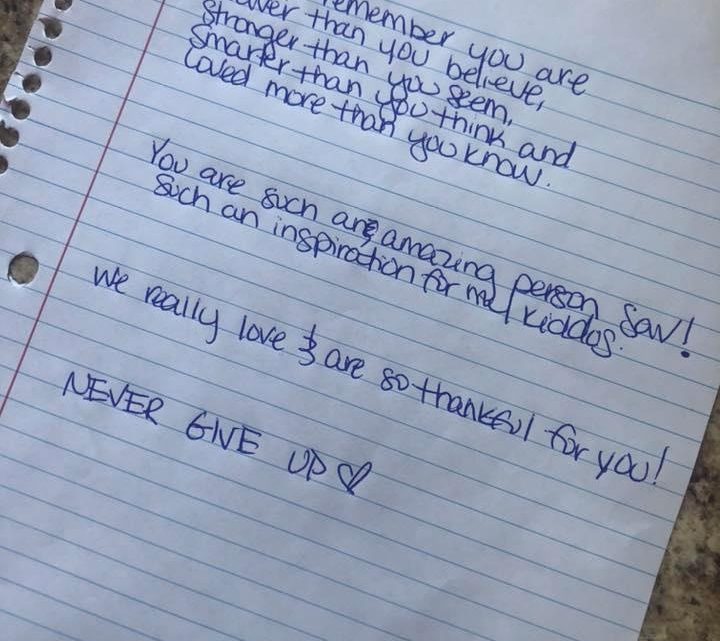 remember you are
than you believe,
Stronger than you seem,
Smarter than you think and
Loved more than you know.
You are such an amazing person Sav!
Such an inspiration for my kiddos.
We really love & are so thankful for you!
NEVER GIVE UP ♡